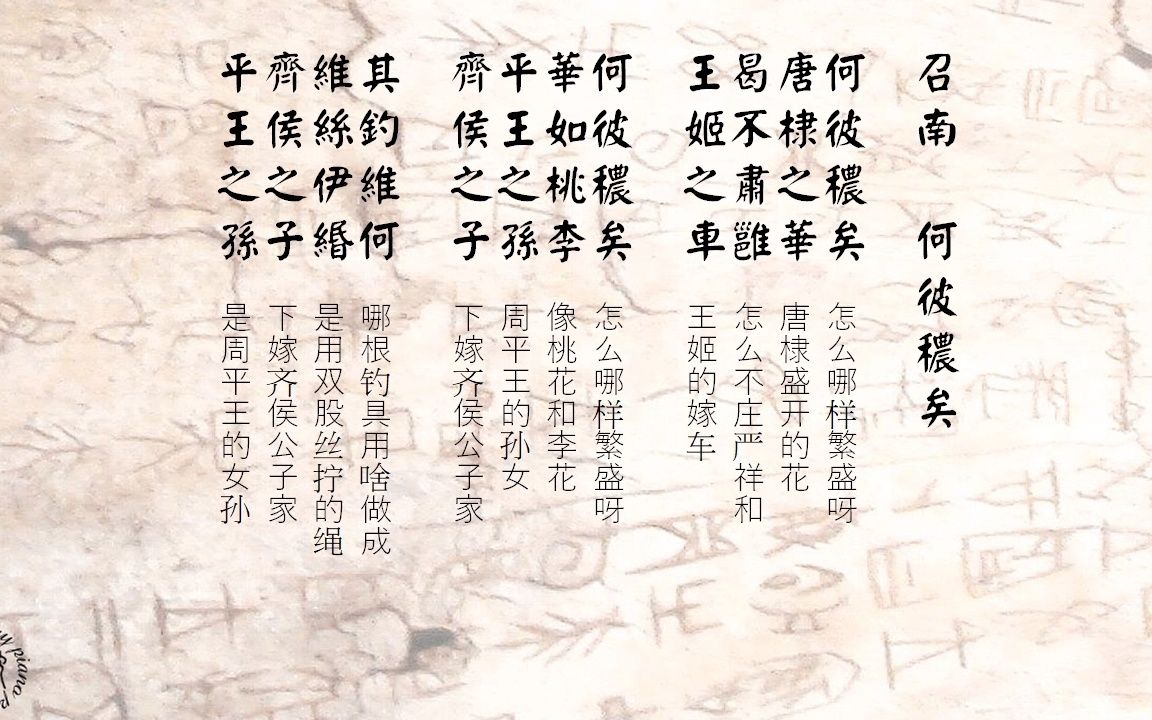 召南 何彼穠矣
何彼穠矣
怎么哪样繁盛呀
唐棣之華
唐棣盛开的花
曷不肅雝
怎么不庄严祥和
王姬之車
王姬的嫁车
何彼穠矣
怎么哪样繁盛呀
華如桃李
像桃花和李花
平王之孫
周平王的孙女
齊侯之子
下嫁齐侯公子家
其釣維何
哪根钓具用啥做成
維絲伊緡
是用双股丝拧的绳
齊侯之子
下嫁齐侯公子家
平王之孫
是周平王的女孙
piano